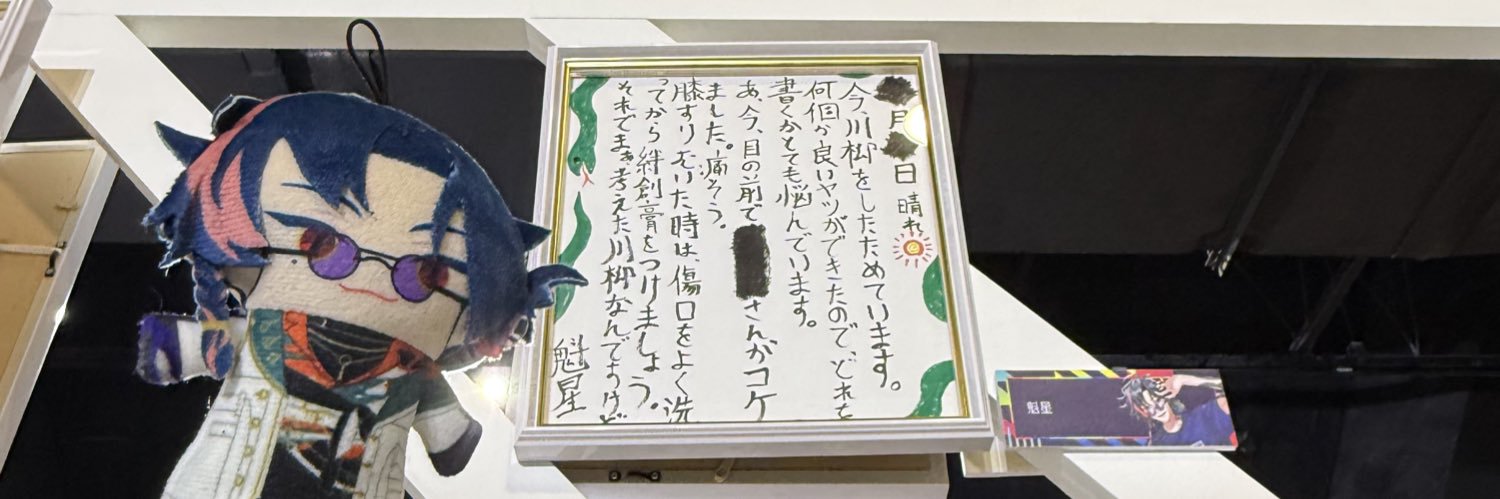 月 日 晴れ
今、川柳をしたためています。
何個か良いヤツができたので、どれを
書くかとても悩んでいます。
あ、今、目の前で さんがコケ
ました。痛そう。
膝すりむいた時は、傷口をよく洗
ってから絆創膏をつけましょう。
それでまぁ考えた川柳なんですけど
魁星
魁星